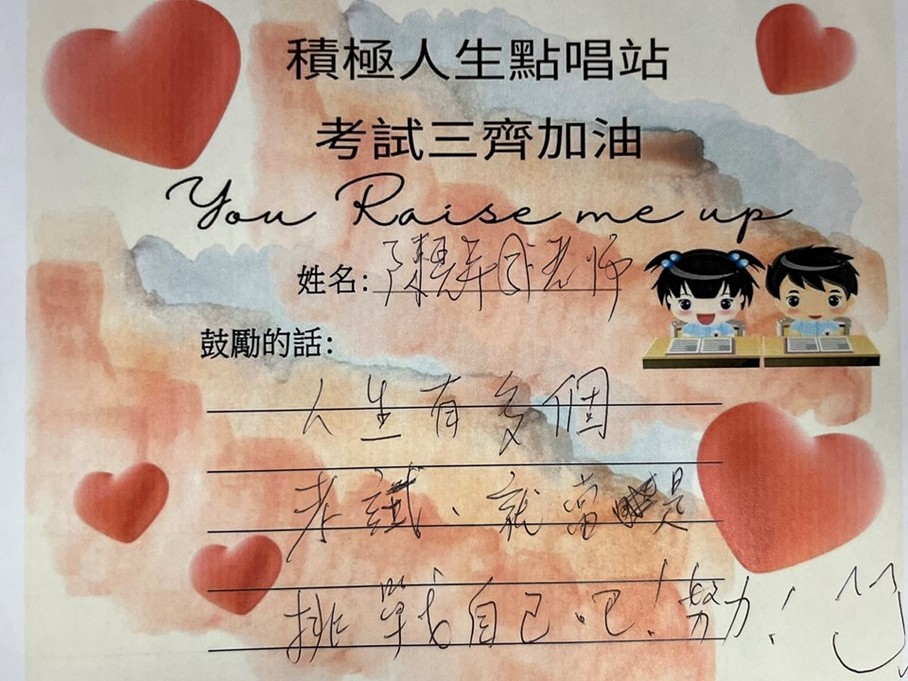 積極人生點唱站
考試三齊加油
You Raise me up
姓名: 陳 老師
鼓勵的話:
人生有多個
考試、就當是
挑戰自己吧!努力!